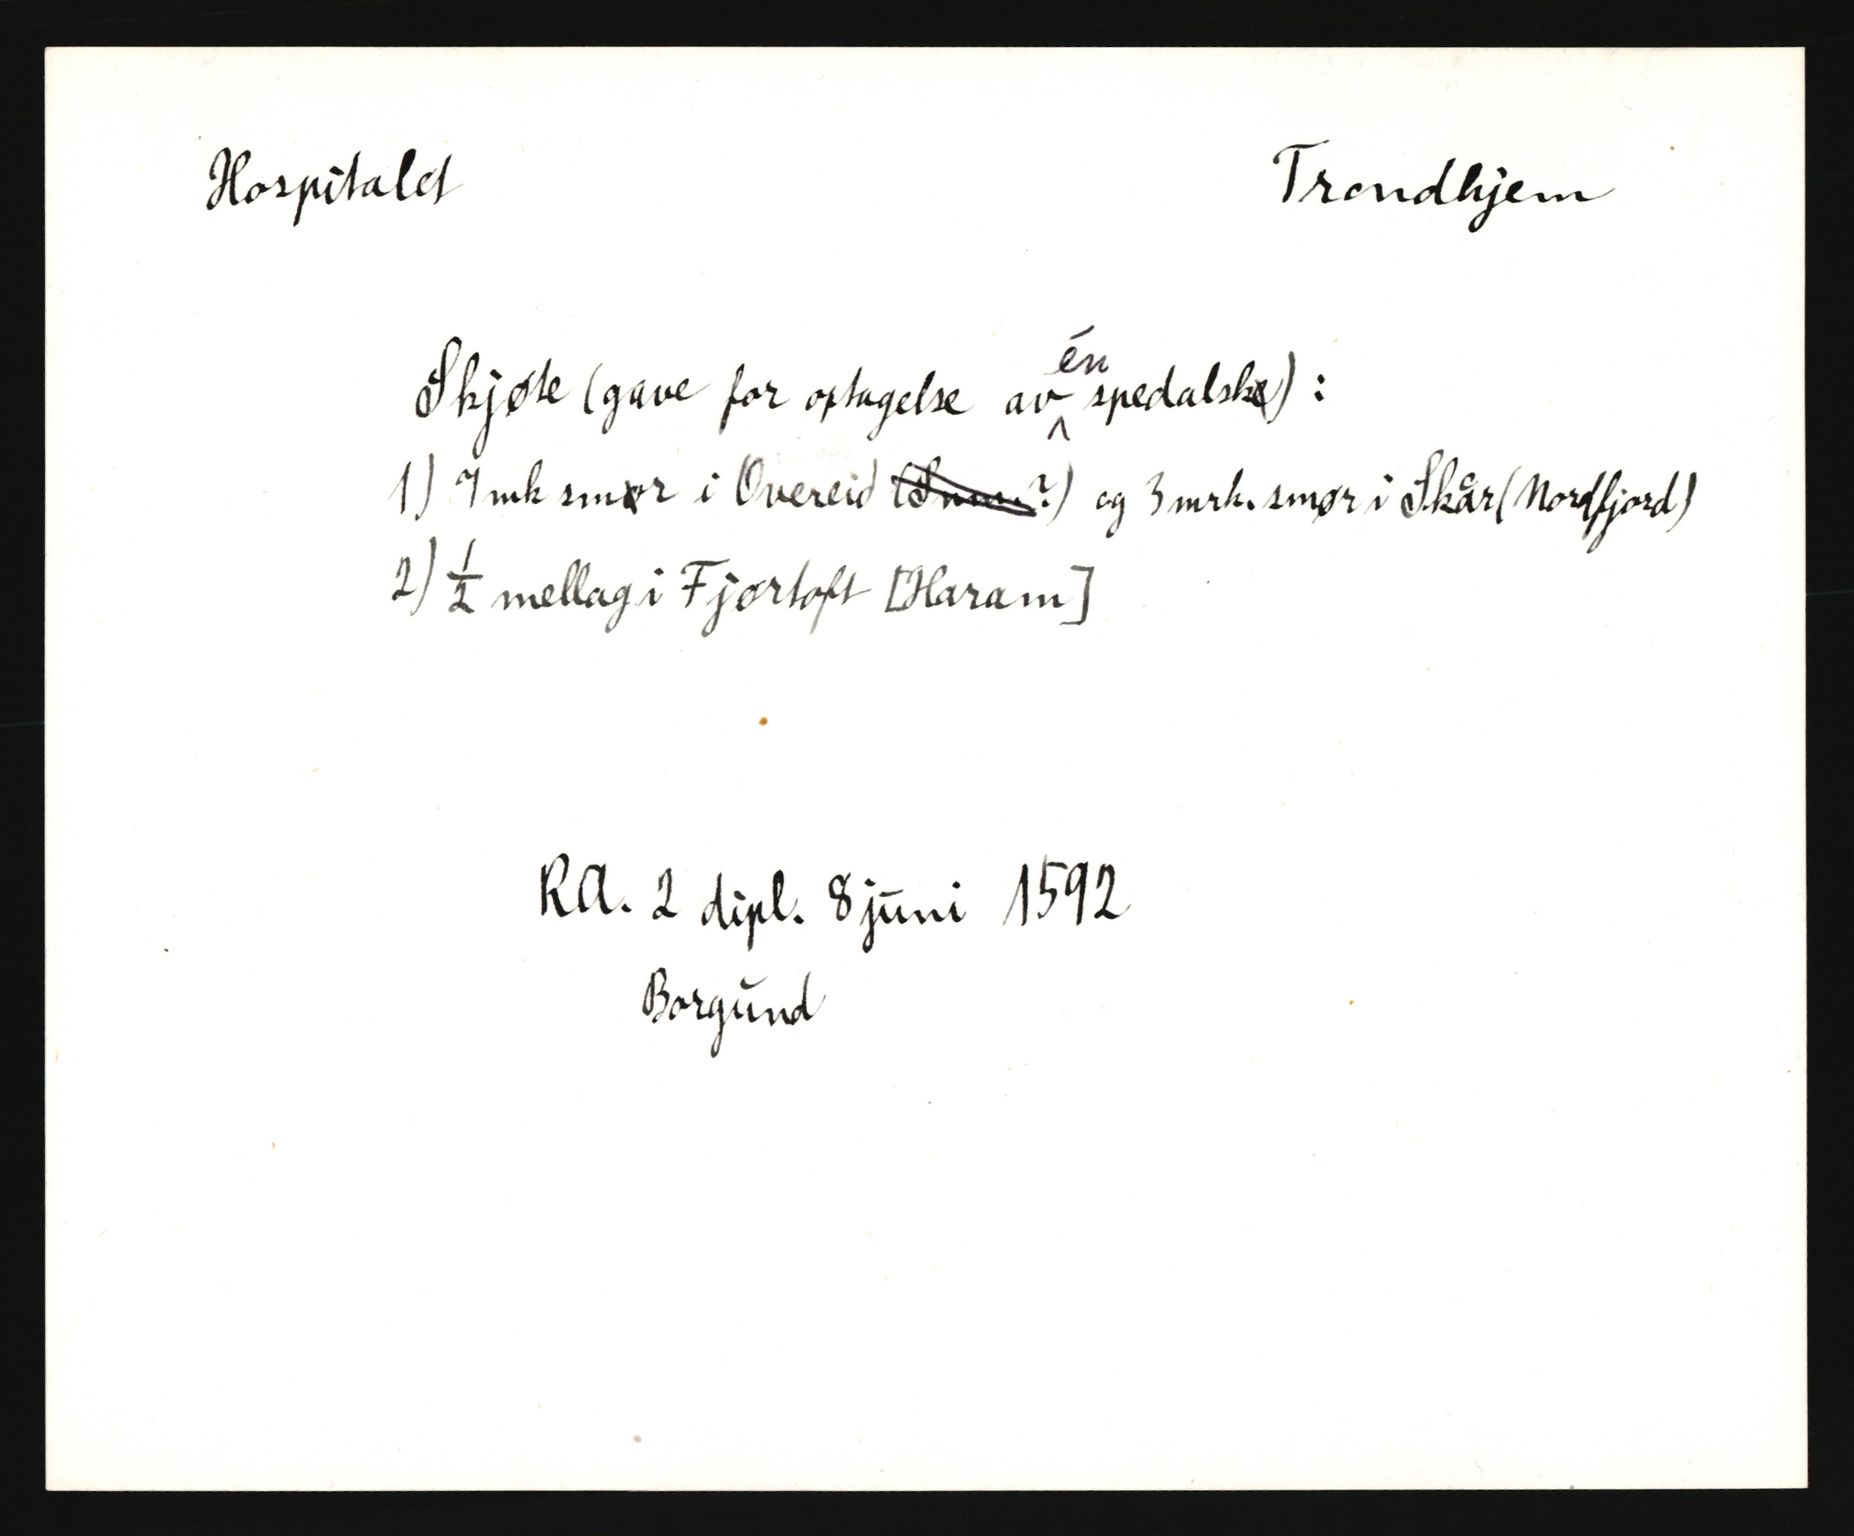 Hospitalet Trondhjem
Skjøte (gave for optagelse av én spedalsk) :
1) 7 mk smør i Overeid (Sunm.?) og 3 mrk. smør i Skår (Nordfjord)
2) ½ mellag i Fjørtoft [Haram]
RA. 2 dipl. 8 juni 1592
Borgund